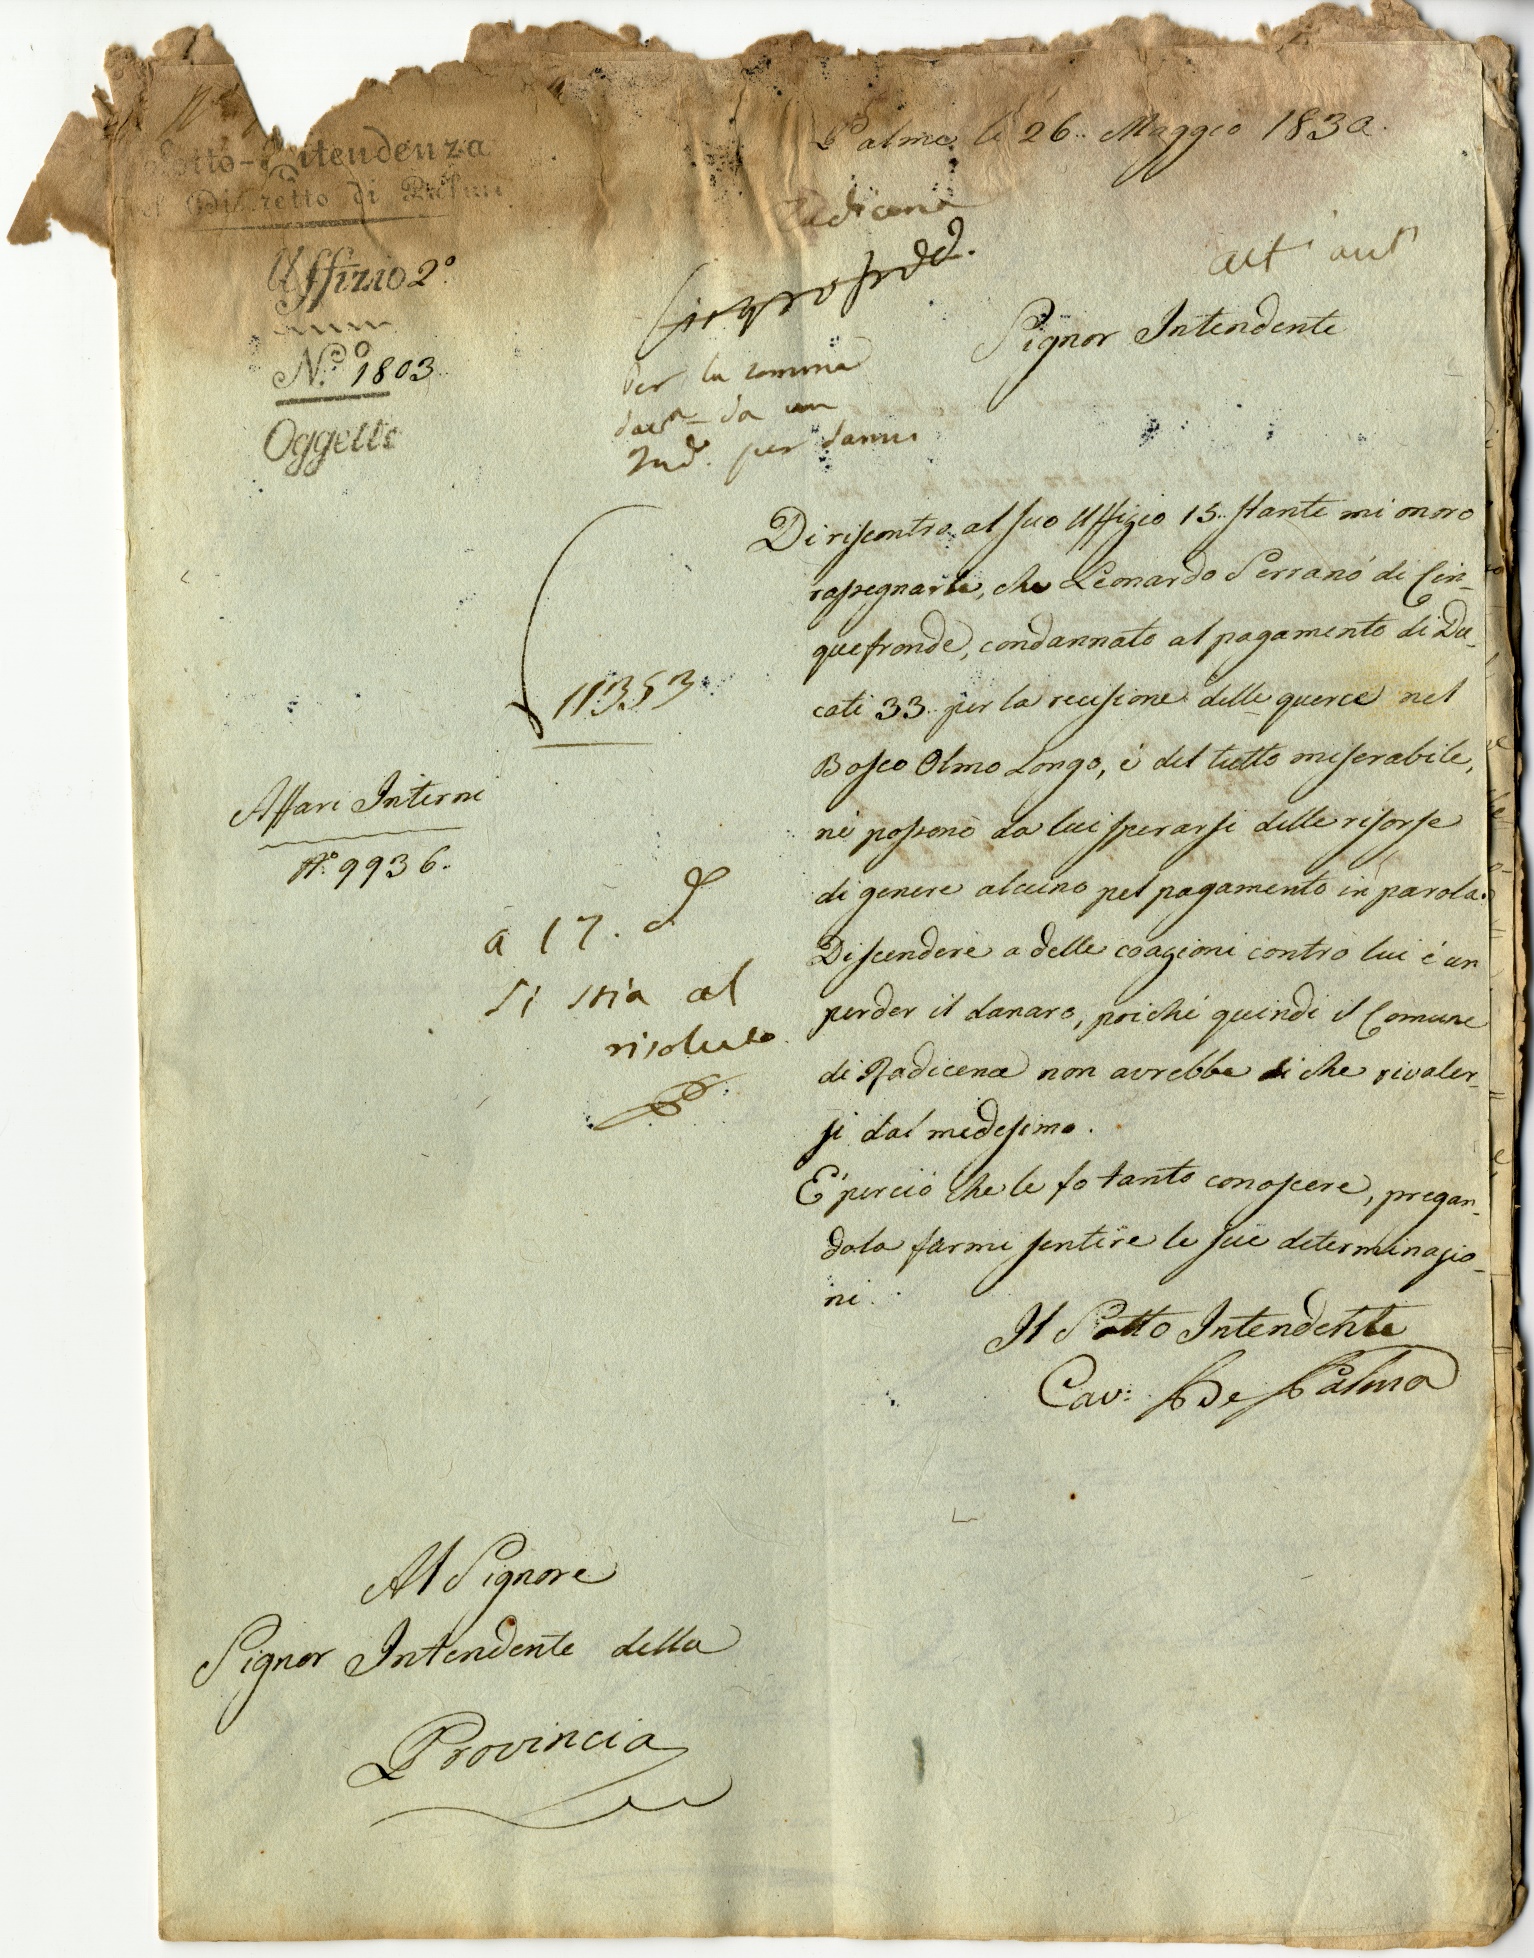 Sotto-Intendenza
del Distretto di Palmi
Uffizio 2º
N.º 1803
Oggetto
Palma li 26. Maggio 1830.
Radicena
Per la somma
da un
Ind. per danni
Signor Intendente
11353
Affari Interni
N.º 9936.
a 17. d
Si stia al
risoluto
Di riscontro al suo Uffizio 15. stante mi onoro
rassegnarle, che Leonardo Serranò di Cin-
quefronde, condannato al pagamento di Du-
cati 33. per la recisione delle querce nel
Bosco Olmo Longo, è del tutto miserabile,
nè possono da lui sperarsi delle risorse
di genere alcuno pel pagamento in parola.
Discendere a delle coazioni contro lui è un
perder il danaro, poichè quindi il Comune
di Radicena non avrebbe di che rivaler-
si dal medesimo.
E' perciò che le fo tanto conoscere, pregan-
dola farmi sentire le sue determinazio-
ni.
Il Sotto Intendente
Cav: De Palma
Al Signore
Signor Intendente della
Provincia